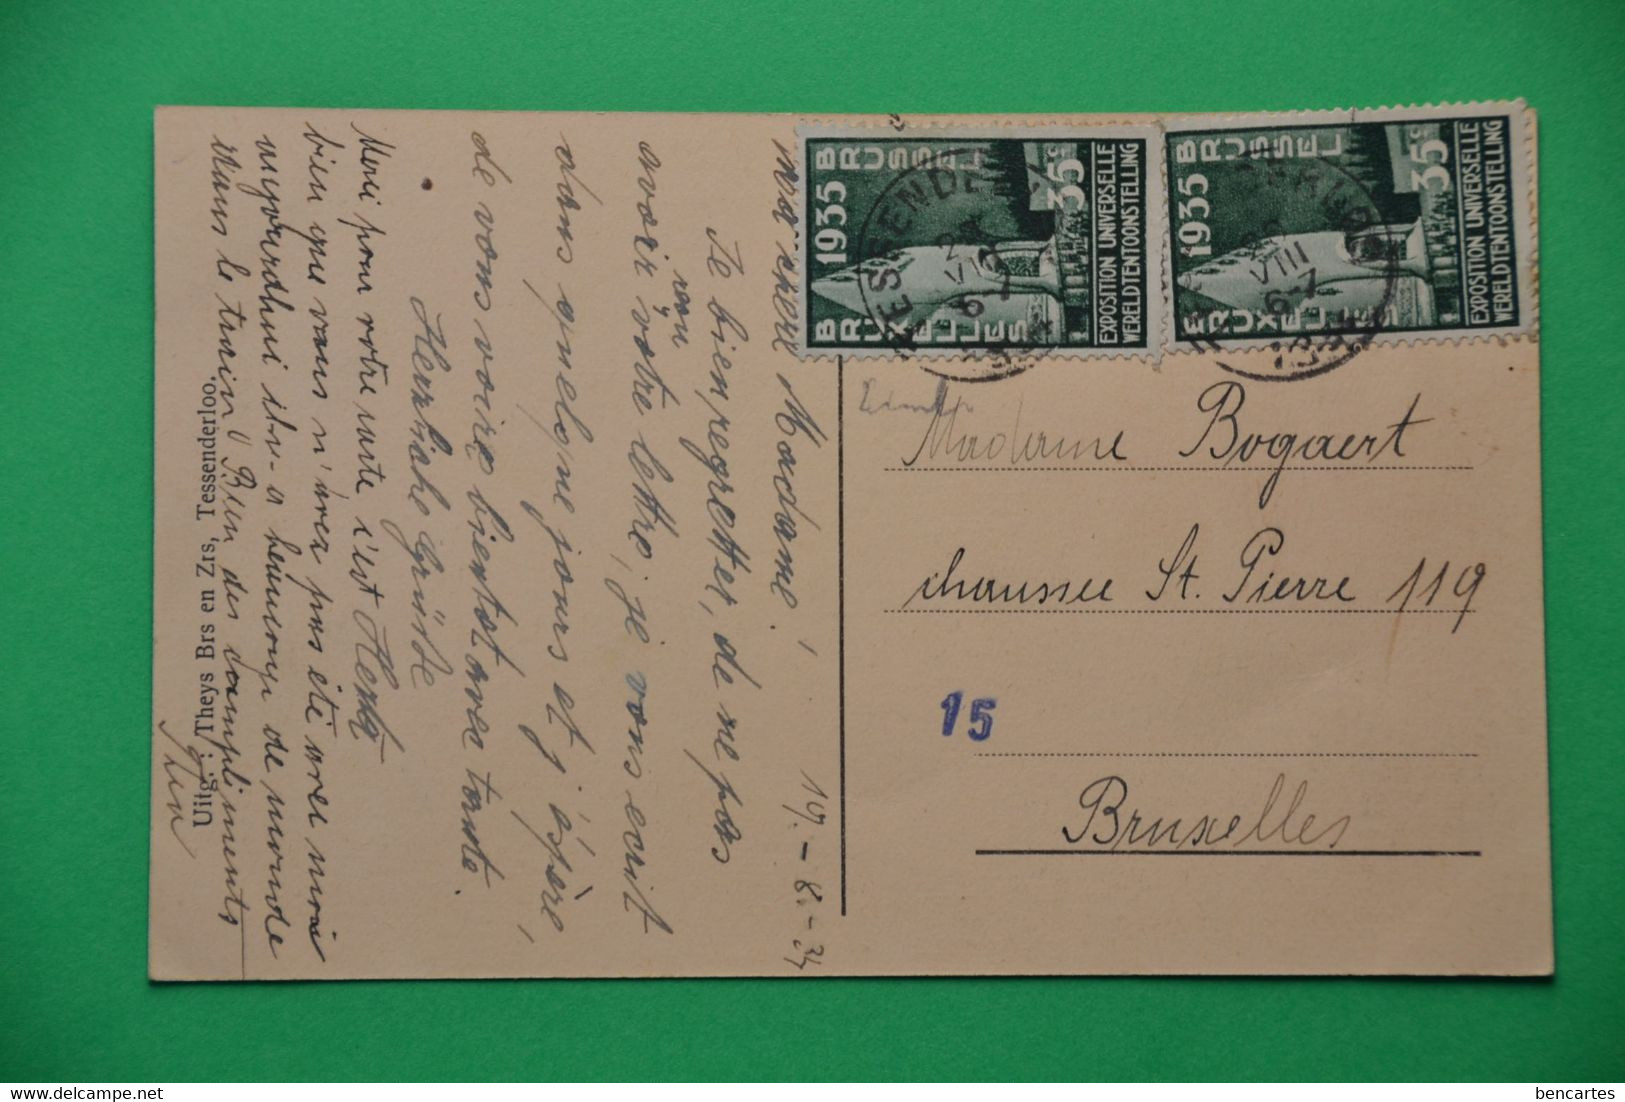 ma chere Madame!
19.-8.-34
Je bien regretter, de ne pas
avoir votre lettre, je vous ecrit
reçu
dans quelque jours et j'éspère,
de vous voire bientot avec tante.
Herzliche Grüsse
Merci pour votre carte c'est
bien que vous n'avez pas été avec moi
aujourdhui il y a beaucoup de monde
dans le train! Bien des compliments
Uitg.: Theys Brs en Zrs, Tessenderloo.
1935 BRUSSEL
BRUXELLES
35c
EXPOSITION UNIVERSELLE
WERELDTENTOONSTELLING
1935 BRUSSEL
BRUXELLES
35c
EXPOSITION UNIVERSELLE
WERELDTENTOONSTELLING
VIII
6-7
VIII
6-7
Madame Bogaert
chaussee St. Pierre 119
15
Bruxelles
bencartes